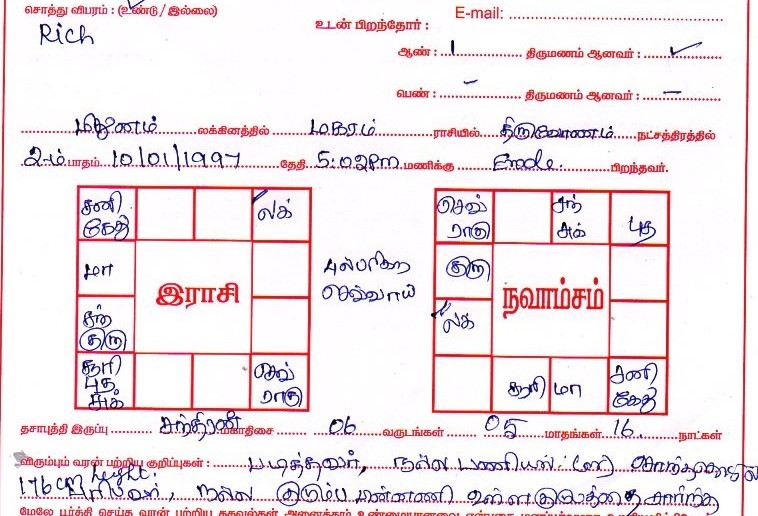 சொத்து விபரம் : (உண்டு / இல்லை) E-mail:
Rich உடன் பிறந்தோர் :
ஆண் : 1 திருமணம் ஆனவர் : ✓
பெண் : - திருமணம் ஆனவர் : -
மிதுனம் லக்கினத்தில் மகரம் ராசியில் திருவோணம் நட்சத்திரத்தில்
2-ம் பாதம் 10/01/1997 தேதி 5:02 Pm மணிக்கு Erode. பிறந்தவர்.
சனி கேது லக் செவ் ராகு சந் சுக் புத
மா இராசி பரிகார செவ்வாய் குரு நவாம்சம்
சந் குரு லக்
சூரி புத சுக் செவ் ராகு சூரி மா சனி கேது
தசாபுத்தி இருப்பு சந்திரன் மகாதிசை 06 வருடங்கள் 05 மாதங்கள் 16 நாட்கள்
விரும்பும் வரன் பற்றிய குறிப்புகள் : படித்தவர், நல்ல பணியில்
176 CM height. நல்ல குடும்ப பின்னணி உள்ள
மேலே பூர்த்தி செய்த வரன் பற்றிய தகவல்கள் அனைத்தும் உண்மையானவை